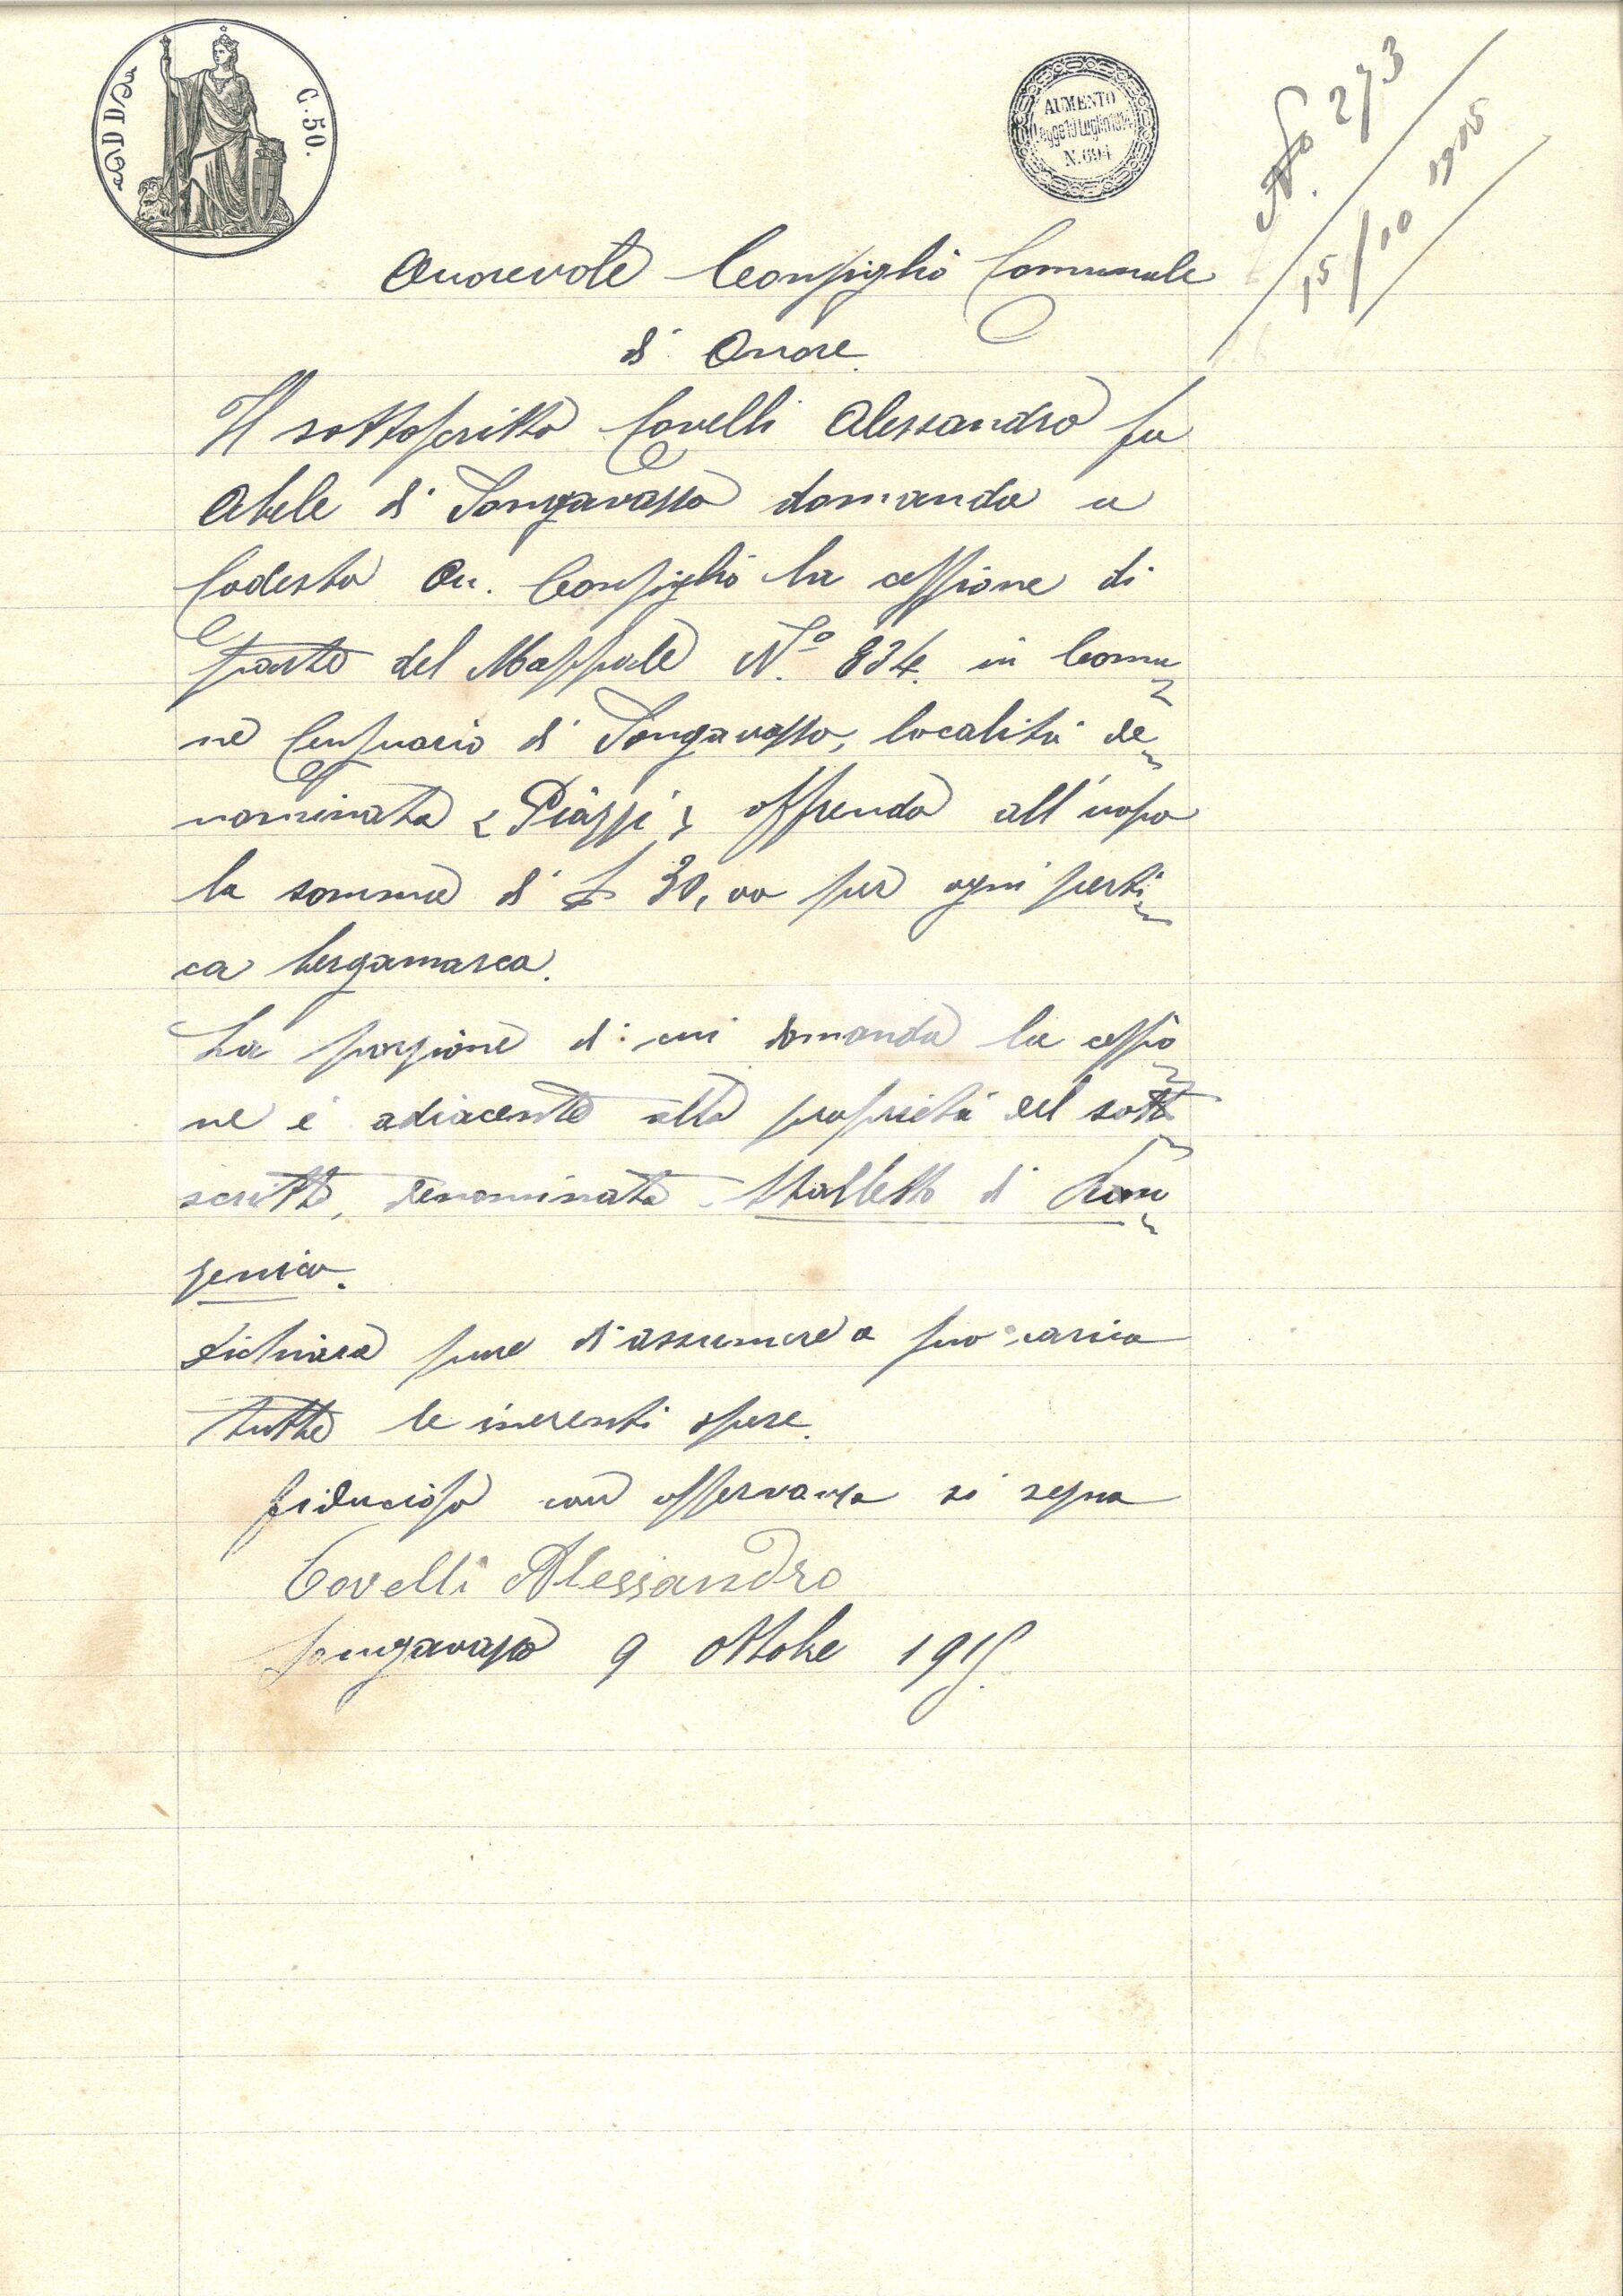 C. 50.
AUMENTO
Legge 19 Luglio 1914
N. 694
No 273
15/10 1915
Onorevole Consiglio Comunale
di Onore.
Il sottoscritto Covelli Alessandro fu
Abele di Songavasso domanda a
Codesto On. Consiglio la cessione di
parte del Mappale N.º 834 in Comu
ne Censuario di Songavasso, località de
nominata "Piazzi" offrendo all'uopo
la somma di £ 30,00 per ogni perti
ca bergamasca.
La porzione di cui domanda la cessio
ne è adiacente alla proprietà del sotto
scritto, denominata Stalletto di
Dichiara pure di assumere a suo carico
tutte le inerenti spese.
Fiducioso con osservanza si segna
Covelli Alessandro
Songavasso 9 Ottobre 1915.